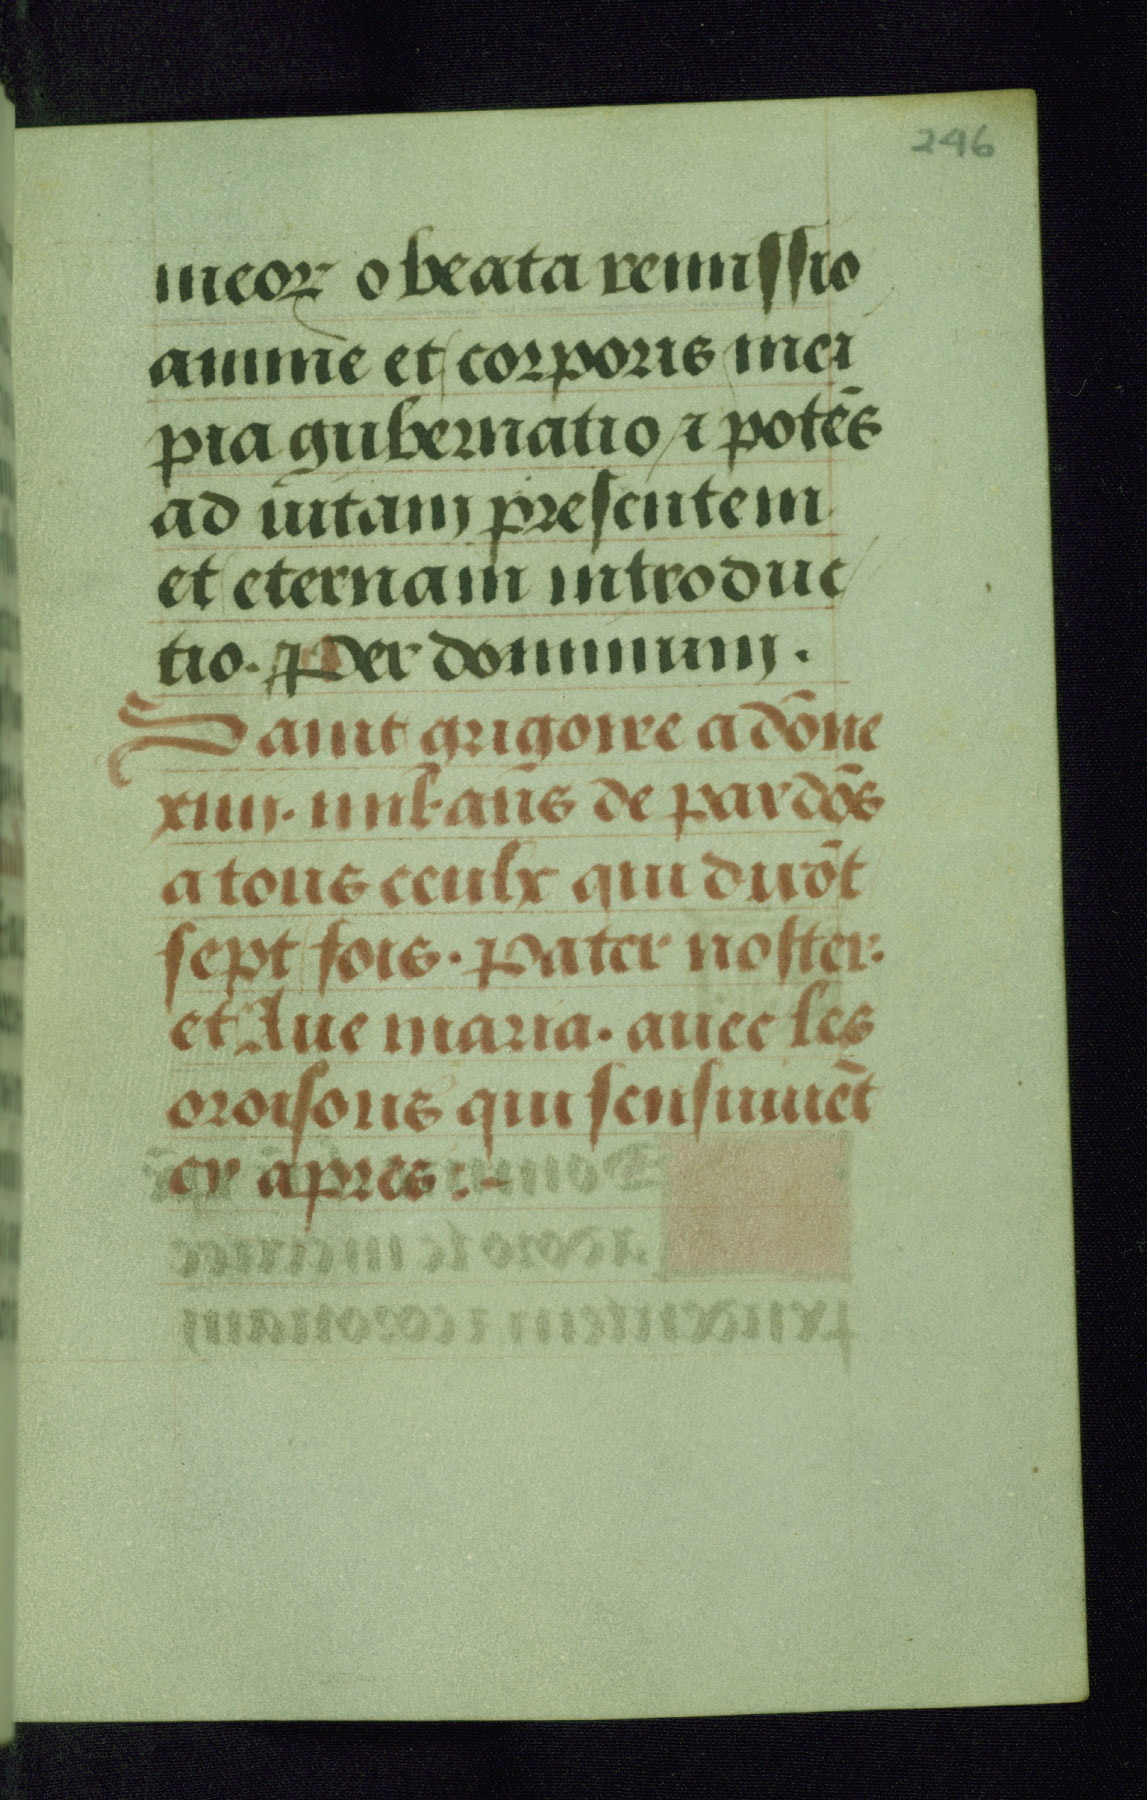 246
meoꝝ o beata remissio
anime et corporis mei
pia gubernatio ⁊ potēs
ad uitam presentem
et eternam introduc
tio. Per dominum.
Saint grigoire a dōne
xiiij. mil. ans̄ de pardōs
a tous ceulx qui dirōt
sept fois. Pater noster.
et Aue maria. auec les
oroisons qui sensuiuēt
cy apres:-